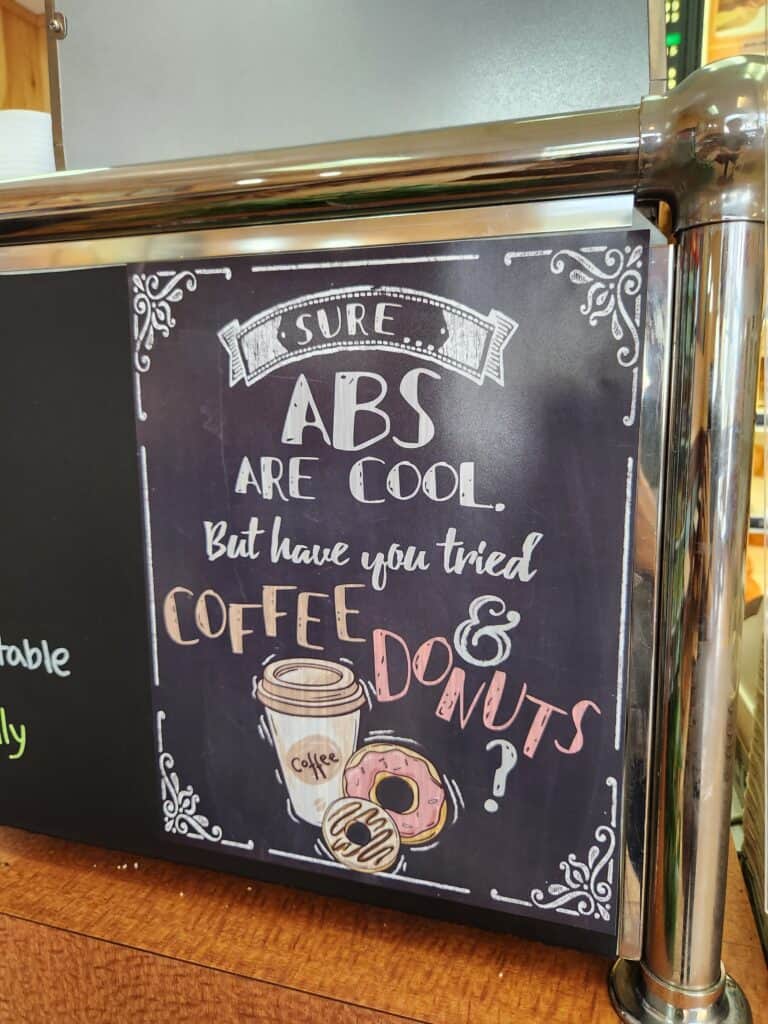 SURE...
ABS
ARE COOL.
But have you tried
COFFEE &
DONUTS
?
Coffee
table
lly